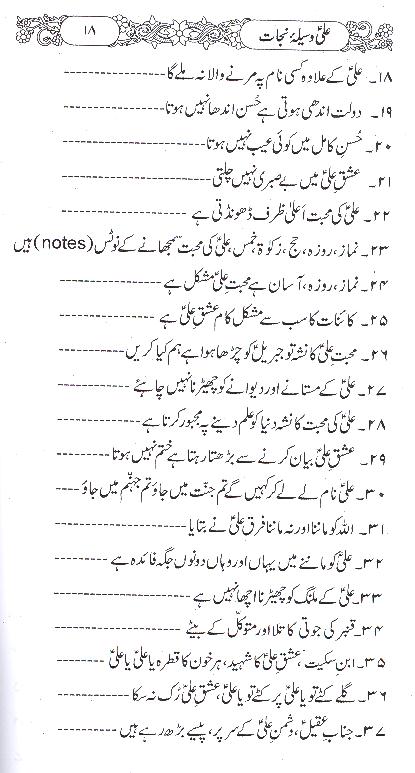 علیؑ وسیلۂ نجات
۱۸
۱۸۔ علیؑ کے علاوہ کسی نام پہ مرنے والا نہ ملے گا
۱۹۔ دولت اندھی ہوتی ہے حُسن اندھا نہیں ہوتا
۲۰۔ حُسنِ کامل میں کوئی عیب نہیں ہوتا
۲۱۔ عشقِ علیؑ میں بے صبری نہیں چلتی
۲۲۔ علیؑ کی محبت اَعلیٰ ظرف ڈھونڈتی ہے
۲۳۔ نماز، روزہ، حج، زکوٰۃ، خمس، علیؑ کی محبت سمجھانے کے نوٹس (notes) ہیں
۲۴۔ نماز، روزہ، آسان ہے محبتِ علیؑ مشکل ہے
۲۵۔ کائنات کا سب سے مشکل کام عشقِ علیؑ ہے
۲۶۔ محبتِ علیؑ کا نشہ تو جبریلؑ کو چڑھا ہوا ہے ہم کیا کریں
۲۷۔ علیؑ کے مستانے اور دیوانے کو چھیڑنا نہیں چاہئے
۲۸۔ علیؑ کی محبت کا نشہ دنیا کو علم دینے پہ مجبور کرتا ہے
۲۹۔ عشقِ علیؑ بیان کرنے سے بڑھتا رہتا ہے ختم نہیں ہوتا
۳۰۔ علیؑ نام لے لے کر کہیں گے تم جنّت میں جاؤ تم جہنّم میں جاؤ
۳۱۔ اللہ کو ماننا اور نہ ماننا فرق علیؑ نے بتایا
۳۲۔ علیؑ کو ماننے میں یہاں اور وہاں دونوں جگہ فائدہ ہے
۳۳۔ علیؑ کے ملنگ کو چھیڑنا اچھا نہیں ہے
۳۴۔ قنبر کی جوتی کا تلا اور متوکّل کے بیٹے
۳۵۔ ابنِ سکیت، عشقِ علیؑ کا شہید، ہر خون کا قطرہ یا علیؑ یا علیؑ
۳۶۔ گلے کٹے تو یا علیؑ پر کٹے تو یا علیؑ، عشقِ علیؑ رُک نہ سکا
۳۷۔ جنابِ عقیلؑ، دشمنِ علیؑ کے سر پر، پیسے بڑھ رہے ہیں